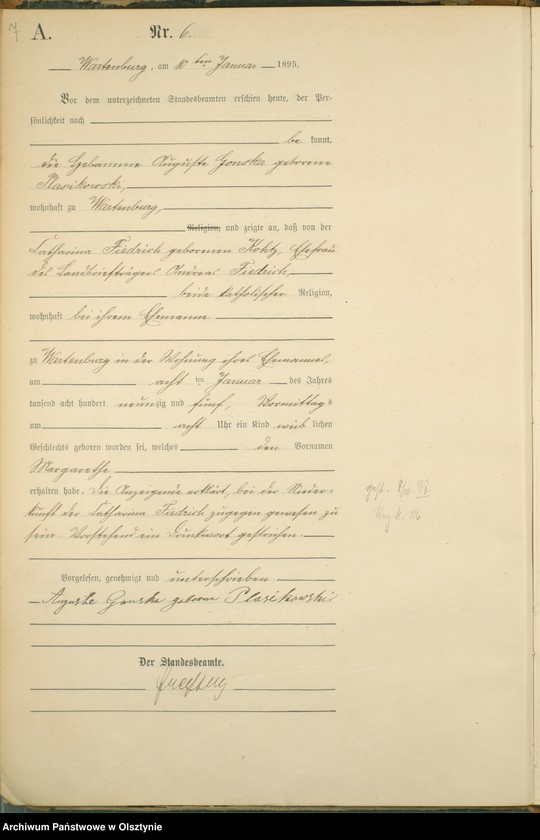 7
A.
Nr. 6.
Wartenburg, am 10 ten Januar 1895.
Vor dem unterzeichneten Standesbeamten erschien heute, der Per-
sönlichkeit nach
be kannt,
die Hebamme Auguste Gonska geborene
Plasikowski,
wohnhaft zu Wartenburg,
Religion, und zeigte an, daß von der
Catharina Fiedrich geborenen Kohtz, Ehefrau
des Landbriefträgers Andreas Fiedrich,
beide katholischer Religion,
wohnhaft bei ihrem Ehemanne
zu Wartenburg in der Wohnung ihres Ehemannes,
am acht ten Januar des Jahres
tausend acht hundert neunzig und fünf, Vormittags
um acht Uhr ein Kind weib lichen
Geschlechts geboren worden sei, welches den Vornamen
Margarethe
erhalten habe. Die Anzeigende erklärt, bei der Nieder-
kunft der Catharina Fiedrich zugegen gewesen zu
sein. Vorstehend ein Druckwort gestrichen.
Vorgelesen, genehmigt und unterschrieben
Auguste Gonska geborne Plasikowski
Der Standesbeamte.
gest.
116
Archiwum Państwowe w Olsztynie